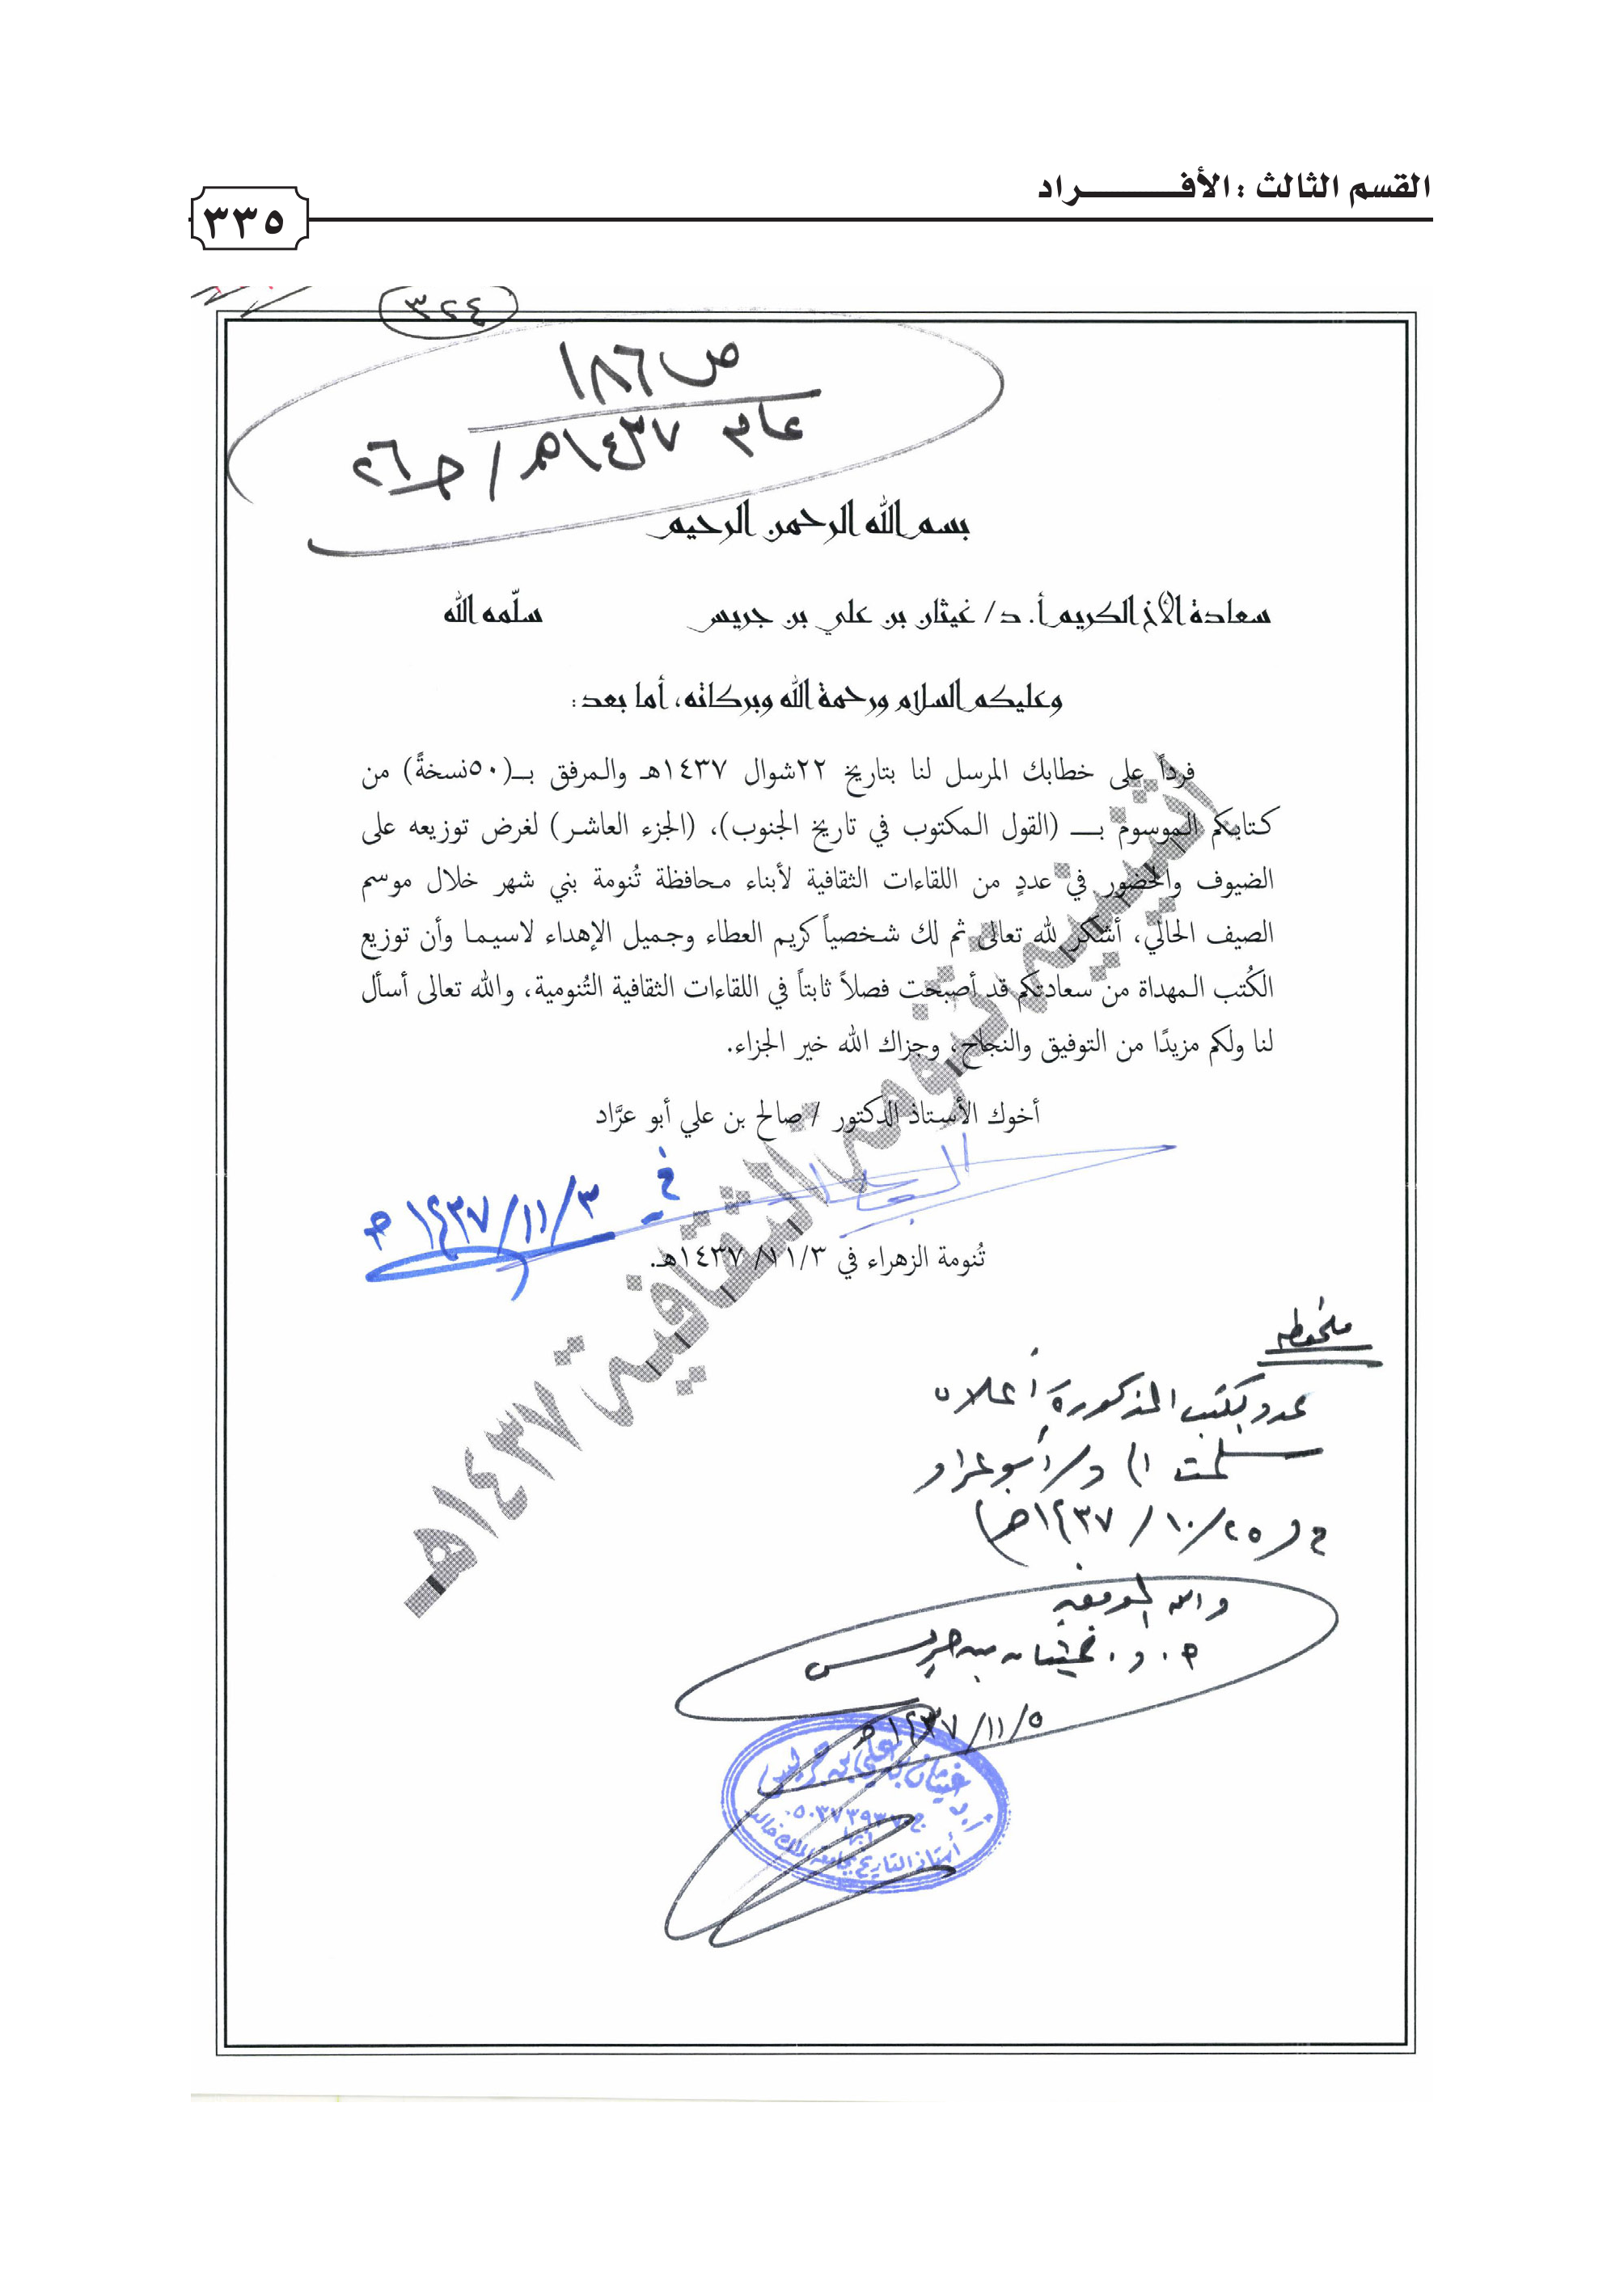 القسم الثالث : الأفـــــــــراد
٣٣٥
٣٢٤
ص ١٨٦
عام ١٤٣٧هـ / جـ ٢٦
بسم الله الرحمن الرحيم
سعادة الأخ الكريم أ. د/ غيثان بن علي بن جريس سلّمه الله
وعليكم السلام ورحمة الله وبركاته، أما بعد :
فرداً على خطابك المرسل لنا بتاريخ ٢٢شوال ١٤٣٧هـ والمرفق بـ(٥٠نسخةً) من
كتابكم الموسوم بـــ (القول المكتوب في تاريخ الجنوب)، (الجزء العاشر) لغرض توزيعه على
الضيوف والحضور في عددٍ من اللقاءات الثقافية لأبناء محافظة تُنومة بني شهر خلال موسم
الصيف الحالي، أشكر لله تعالى ثم لك شخصياً كريم العطاء وجميل الإهداء لاسيما وأن توزيع
الكُتب المهداة من سعادتكم قد أصبحت فصلاً ثابتاً في اللقاءات الثقافية التُنومية، والله تعالى أسأل
لنا ولكم مزيدًا من التوفيق والنجاح، وجزاك الله خير الجزاء.
أخوك الأستاذ الدكتور / صالح بن علي أبو عرَّاد
في ١٤٣٧/١١/٣ هـ
تُنومة الزهراء في ١٤٣٧/١١/٣هـ.
اثنينية تنومة الثقافية ١٤٣٧هـ
ملحوظة
عدد الكتب المذكورة أعلاه
سلمت أ/ د/ أبو عراد
في ١٤٣٧/١٠/٢٥هـ
والله الموفق
أ. د. غيثان بن جريس
١٤٣٧/١١/٥ هـ
أ.د. غيثان بن علي بن جريس
أبها
أستاذ التاريخ بجامعة الملك خالد